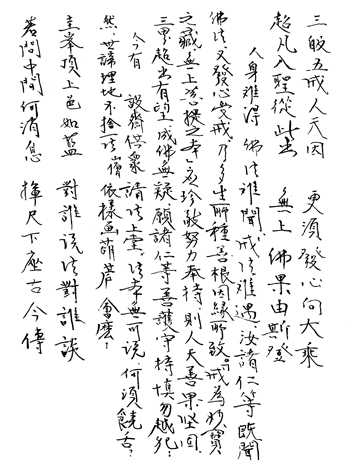 三皈五戒人天因 更須發心向大乘
超凡入聖從此出 無上佛果由斯證
人身難得 佛法難聞 戒法難遇 汝諸仁等既聞
佛法 又發心受戒 乃多生所種善根因緣所致 戒為妙寶
之藏 無上菩提之本 應珍敬努力奉持 則人天善果堅固
三界超出有望 成佛無疑 願諸仁等善護守持 慎勿毀犯
今有 設齋供眾 請法上堂 法本無可說 何須饒舌
然世諦理地不捨一法 依樣畫葫蘆 會麼
主峯頂上色如藍 對誰說法對誰談
若問中間何消息 揮尺下座古今傳